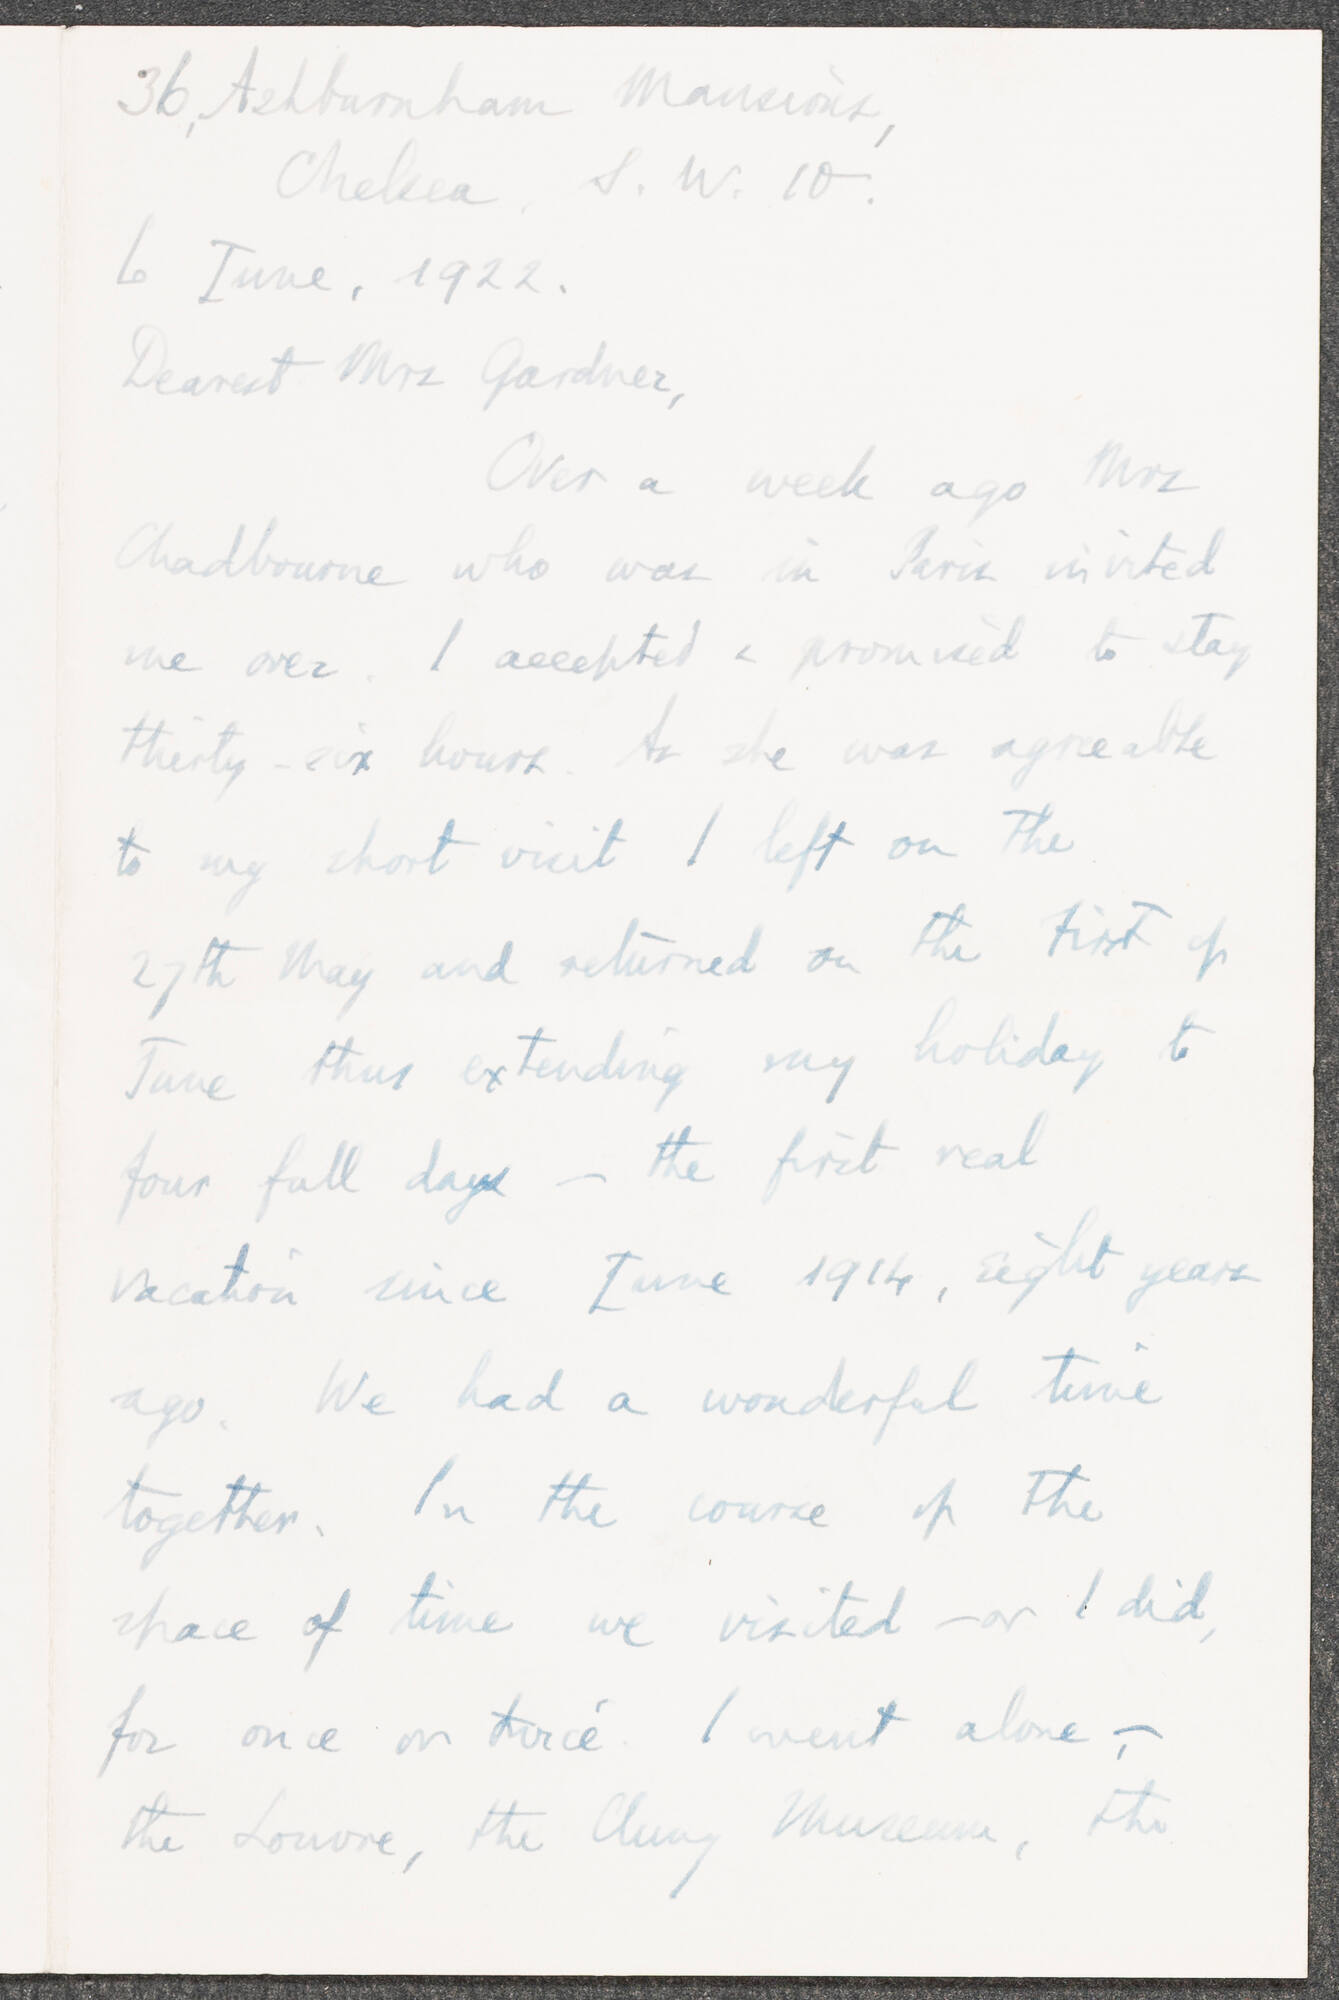 36, Ashburnham Mansions,
Chelsea. S. W. 10.
6 June, 1922.
Dearest Mrs Gardner,
Over a week ago Mrs
Chadbourne who was in Paris invited
me over. I accepted & promised to stay
thirty-six hours. As she was agreeable
to my short visit I left on the
27th May and returned on the first of
June thus extending my holiday to
four full days — the first real
vacation since June 1914, eight years
ago. We had a wonderful time
together. In the course of the
space of time we visited — or I did,
for once or twice I went alone, —
the Louvre, the Cluny Museum, the